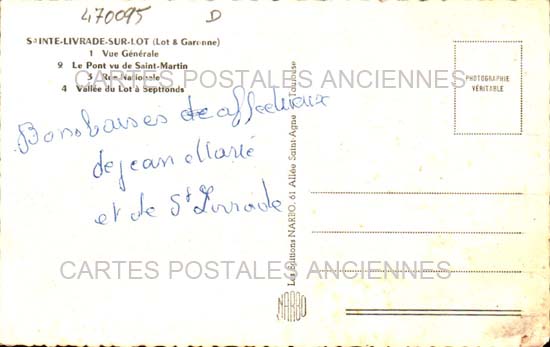 470095 D
SAINTE-LIVRADE-SUR-LOT (Lot & Garonne)
1 Vue Générale
2 Le Pont vu de Saint-Martin
3 Rue Nationale
4 Vallée du Lot à Septfonds
CARTES POSTALES ANCIENNES
PHOTOGRAPHIE
VÉRITABLE
Bons baises de affectueux
de jean Marie
et de St Livrade
Les Éditions NARBO, 61 Allée Saint-Agne Toulouse
CARTES POSTALES ANCIENNES
NARBO